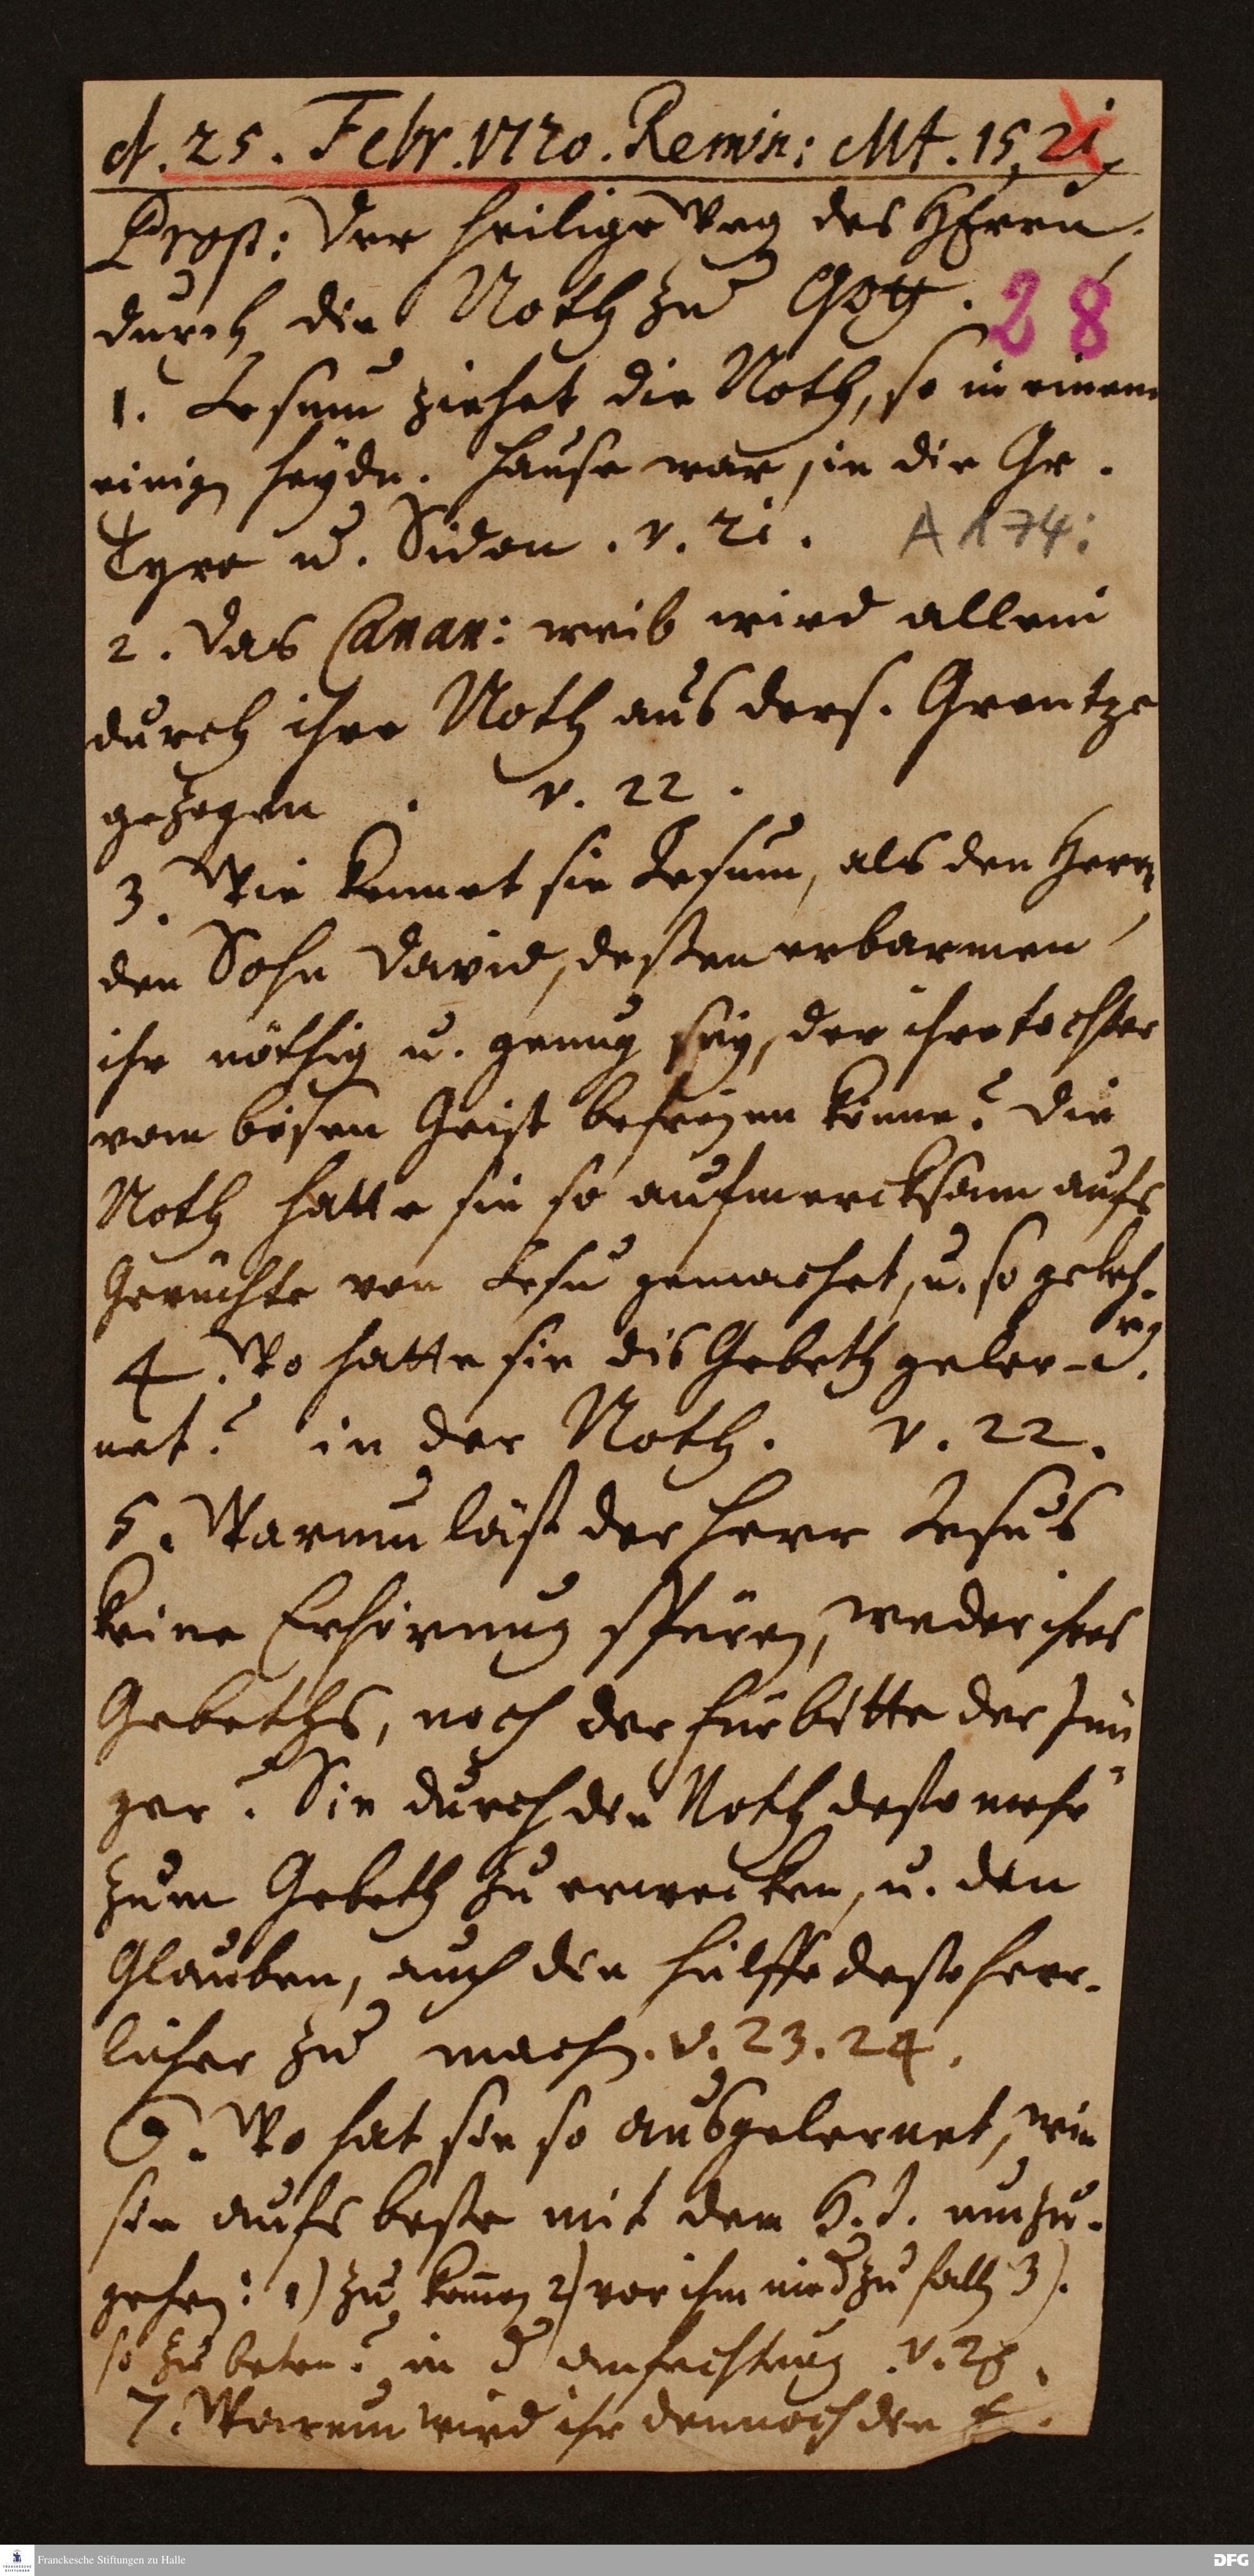 d. 25. Febr. 1720. Remin: Mt. 15, 21.
Ppos: Der heilige Weg des HErrn
durch die Noth zu Gott.
28
1. Jesum ziehet die Noth, so in einem
einigen heydn. Hause war, in die Gr.
Tyro u. Sidon. v. 21.
A 174:
2. Das Canan: weib wird allein
durch ihre Noth aus ders. Grentze
gezogen. v. 22.
3. Wie kennet sie Jesum, als den Herrn
den Sohn David, deßen erbarmen
ihr nöthig u. genug sey, der ihre tochter
vom bösen Geist befreyen könne? Die
Noth hatte sie so aufmercksam aufs
Gerüchte von Jesu gemachet, u. so
4. Wo hatte sie dis Gebeth geler-
net? in der Noth. v. 22.
5. Warum läst der Herr Jesus
keine Erhörung spüren, weder ihres
Gebeths, noch der fürbitte der Jün
ger? Sie durch die Noth desto mehr
zum Gebeth zu erwecken, u. den
Glauben, auch die hülffe desto herr-
licher zu machen. v. 23. 24.
6. Wo hat sie so ausgelernet, wie
sie aufs beste mit dem H. J. umzu-
gehen: 1) zu kom̄en 2) vor ihm nied zu fallen 3).
so zu beten? in d anfechtung. v. 25.
7. Warum wird ihr dennoch die
Franckesche Stiftungen zu Halle
DFG